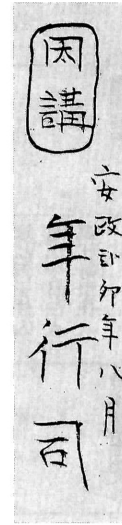 講
安政卯年八月
年行司